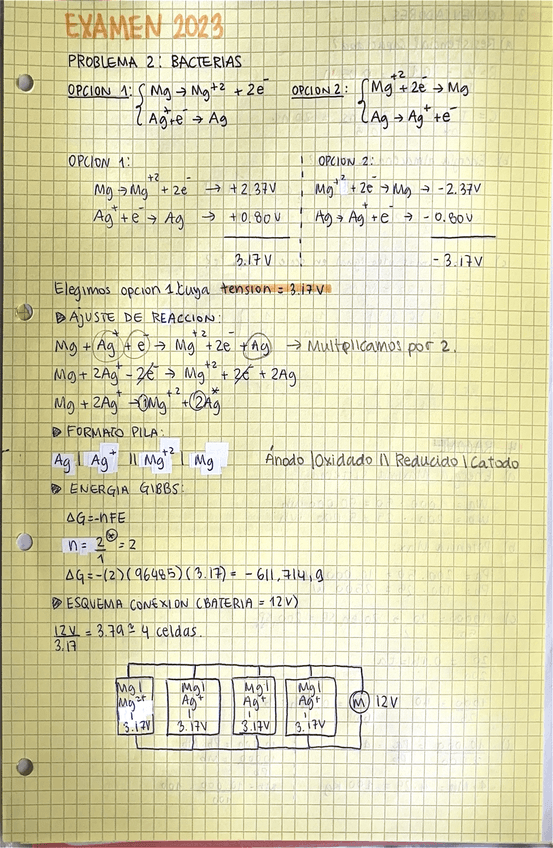 EXAMEN 2023
PROBLEMA 2: BACTERIAS
OPCION 1: { Mg → Mg+2 + 2e-   OPCION 2: { Mg+2 + 2e- → Mg
Ag+ + e- → Ag   Ag → Ag+ + e-
OPCION 1:   OPCION 2:
Mg → Mg+2 + 2e- → +2.37V   Mg+2 + 2e- → Mg → -2.37V
Ag+ + e- → Ag → +0.80V   Ag → Ag+ + e- → -0.80V
3.17V   -3.17V
Elegimos opcion 1. Cuya tension = 3.17V
▷ AJUSTE DE REACCION:
Mg + Ag+ + e- → Mg+2 + 2e- + Ag → Multiplicamos por 2.
Mg + 2Ag+ - 2e- → Mg+2 + 2e- + 2Ag
Mg + 2Ag+ → 1Mg+2 + 2Ag*
▷ FORMATO PILA:
Ag | Ag+ || Mg+2 | Mg   Ánodo | Oxidado || Reducido | Catodo
▷ ENERGIA GIBBS:
ΔG=-nFE
n = 2*/1 = 2
ΔG=-(2)(96485)(3.17) = -611,714,9
▷ ESQUEMA CONEXION (BATERIA = 12V)
12V/3.17 = 3.79 ≃ 4 celdas.
Mg| Mg| Mg| Mg|
Mg2+ Ag+ Ag+ Ag+ M 12V
3.17V 3.17V 3.17V 3.17V